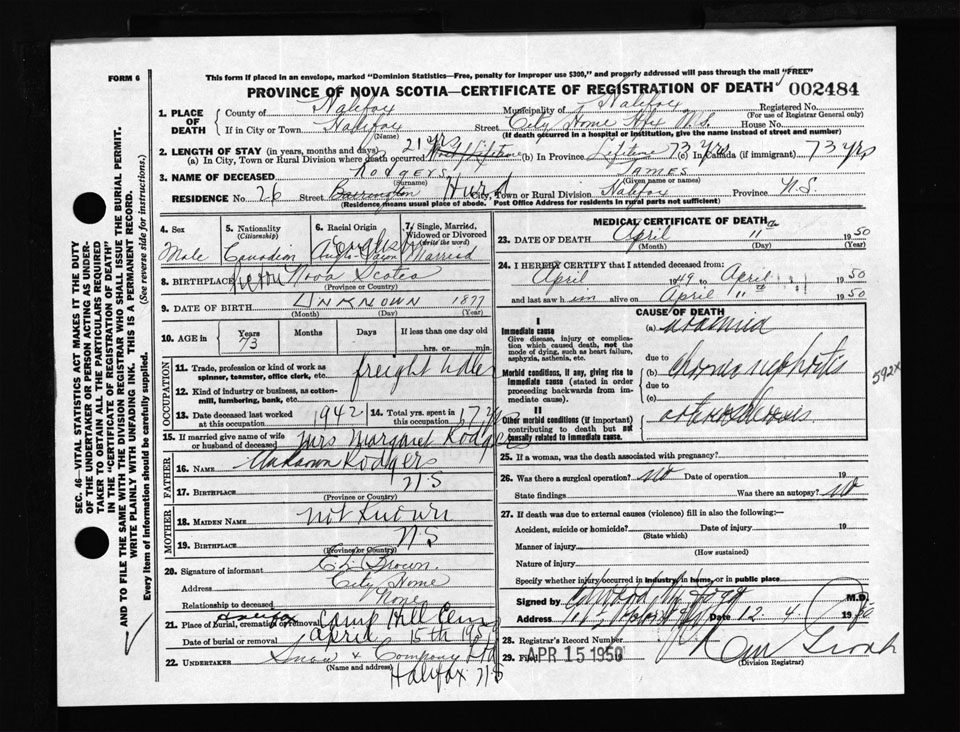 FORM 6
This form if placed in an envelope, marked "Dominion Statistics—Free, penalty for improper use $300," and properly addressed will pass through the mail "FREE"
PROVINCE OF NOVA SCOTIA—CERTIFICATE OF REGISTRATION OF DEATH 002484
1. PLACE OF DEATH
County of Halifax Municipality of Halifax Registered No.
(For use of Registrar General only)
If in City or Town Halifax Street City Home Hfx N.S. House No.
(Name) (If death occurred in a hospital or institution, give its name instead of street and number)
2. LENGTH OF STAY (in years, months and days) 21 yrs
(a) In City, Town or Rural Division where death occurred (b) In Province Lifetime 73 yrs (c) In Canada (if immigrant) 73 yrs
3. NAME OF DECEASED RODGERS JAMES
(Surname) (Given name or names)
RESIDENCE No. 26 Street Barrington Hurd City, Town or Rural Division Halifax Province N.S.
(Residence means usual place of abode. Post Office Address for residents in rural parts not sufficient)
4. Sex Male
5. Nationality (Citizenship) Canadian
6. Racial Origin English Anglo-Saxon
7. Single, Married, Widowed or Divorced (write the word) Married
8. BIRTHPLACE Nova Scotia
(Province or Country)
9. DATE OF BIRTH UNKNOWN 1877
(Month) (Day) (Year)
10. AGE in Years 73 Months Days If less than one day old
hrs. or min.
OCCUPATION
11. Trade, profession or kind of work as spinner, teamster, office clerk, etc. freight
12. Kind of industry or business, as cotton-mill, lumbering, bank, etc.
13. Date deceased last worked at this occupation 1942 14. Total yrs. spent in this occupation 17 yrs
15. If married give name of wife or husband of deceased Mrs Margaret Rodgers
FATHER
16. NAME Unknown Rodgers
17. BIRTHPLACE N S
(Province or Country)
MOTHER
18. MAIDEN NAME not known
19. BIRTHPLACE N S
(Province or Country)
20. Signature of informant Brown
Address City Home
Relationship to deceased None
21. Place of burial, cremation or removal Halifax Camp Hill Cem
Date of burial or removal April 15th 1950
22. UNDERTAKER Snow & Company Ltd
(Name and address)
Halifax N S
MEDICAL CERTIFICATE OF DEATH
23. DATE OF DEATH April 11 1950
(Month) (Day) (Year)
24. I HEREBY CERTIFY that I attended deceased from:
April 1949 to April 11 1950
and last saw him alive on April 11 1950
CAUSE OF DEATH
I
Immediate cause
Give disease, injury or complication which caused death, not the mode of dying, such as heart failure, asphyxia, asthenia, etc.
(a) uraemia
due to
Morbid conditions, if any, giving rise to immediate cause (stated in order proceeding backwards from immediate cause).
(b) chronic nephritis
due to
592X
(c)
II
Other morbid conditions (if important) contributing to death but not causally related to immediate cause.
arteriosclerosis
25. If a woman, was the death associated with pregnancy?
26. Was there a surgical operation? no Date of operation 19
State findings Was there an autopsy? no
27. If death was due to external causes (violence) fill in also the following:—
Accident, suicide or homicide? Date of injury 19
(State which)
Manner of injury
(How sustained)
Nature of injury
Specify whether injury occurred in industry, in home, or in public place
Signed by M.D.
Address Date 12. 4. 1950
28. Registrar's Record Number
29. Filed APR 15 1950
(Division Registrar)
SEC. 46—VITAL STATISTICS ACT MAKES IT THE DUTY
OF THE UNDERTAKER OR PERSON ACTING AS UNDERTAKER TO OBTAIN ALL THE PARTICULARS REQUIRED
IN THE "CERTIFICATE OF REGISTRATION OF DEATH"
AND TO FILE THE SAME WITH THE DIVISION REGISTRAR WHO SHALL ISSUE THE BURIAL PERMIT.
WRITE PLAINLY WITH UNFADING INK. THIS IS A PERMANENT RECORD.
Every item of information should be carefully supplied. (See reverse side for instructions.)